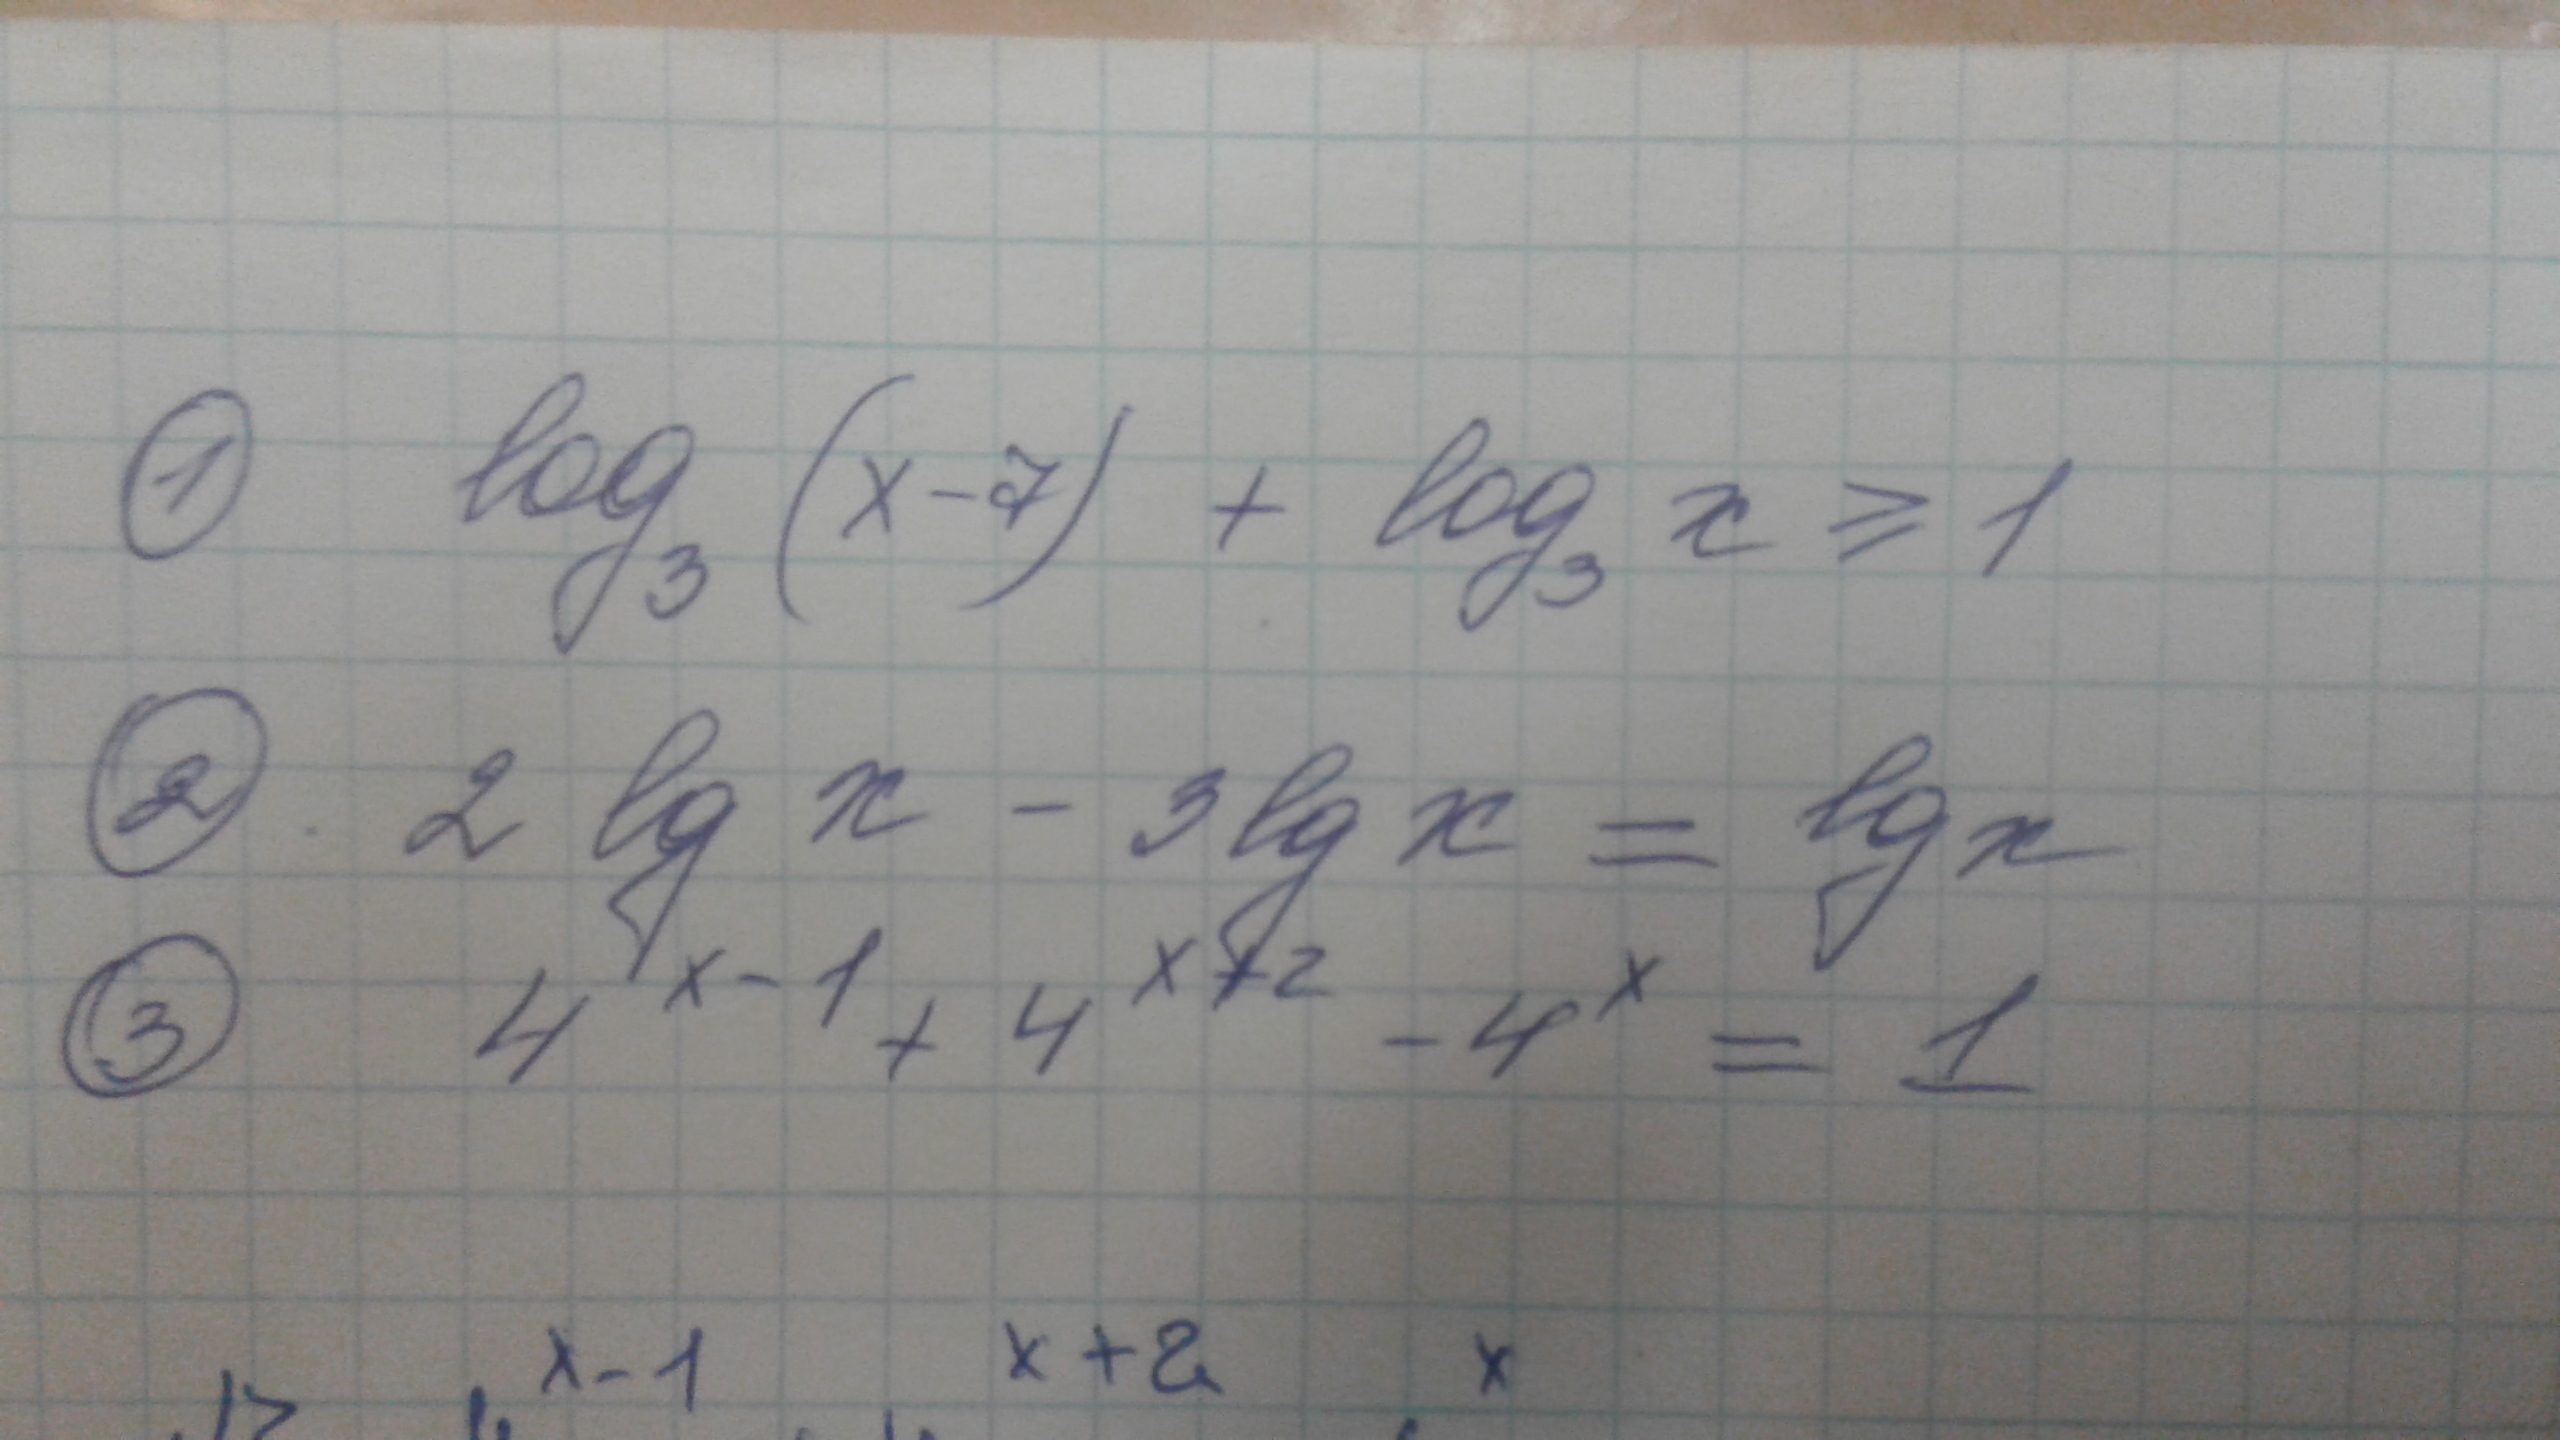 ① log₃(x-7) + log₃ x ≥ 1
②. 2 lg x - 3 lg x = lg x
③ 4^{x-1} + 4^{x+2} - 4^x = 1
x-1 x+2 x